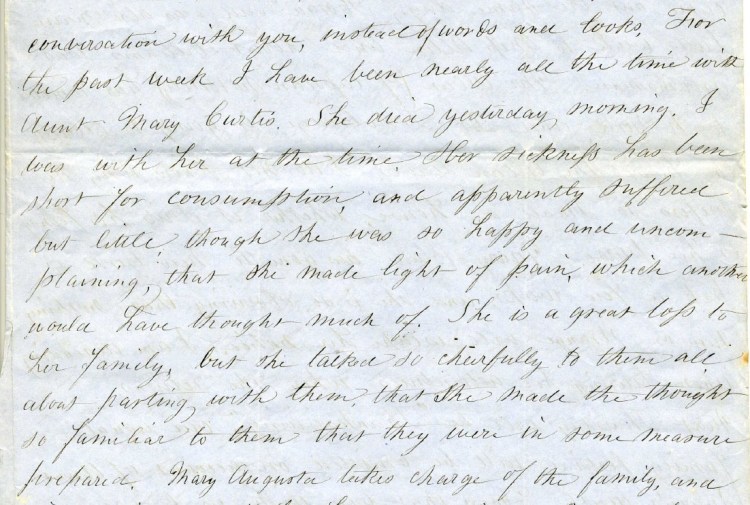 conversation with you, instead of words and looks. For
the past week I have been nearly all the time with
Aunt Mary Curtis. She died yesterday morning. I
was with her at the time. Her sickness has been
short for consumption, and apparently suffered
but little, though she was so happy and uncom-
plaining, that she made light of pain, which another
would have thought much of. She is a great loss to
her family, but she talked so cheerfully to them all
about parting with them, that she made the thought
so familiar to them that they were in some measure
prepared. Mary Augusta takes charge of the family, and